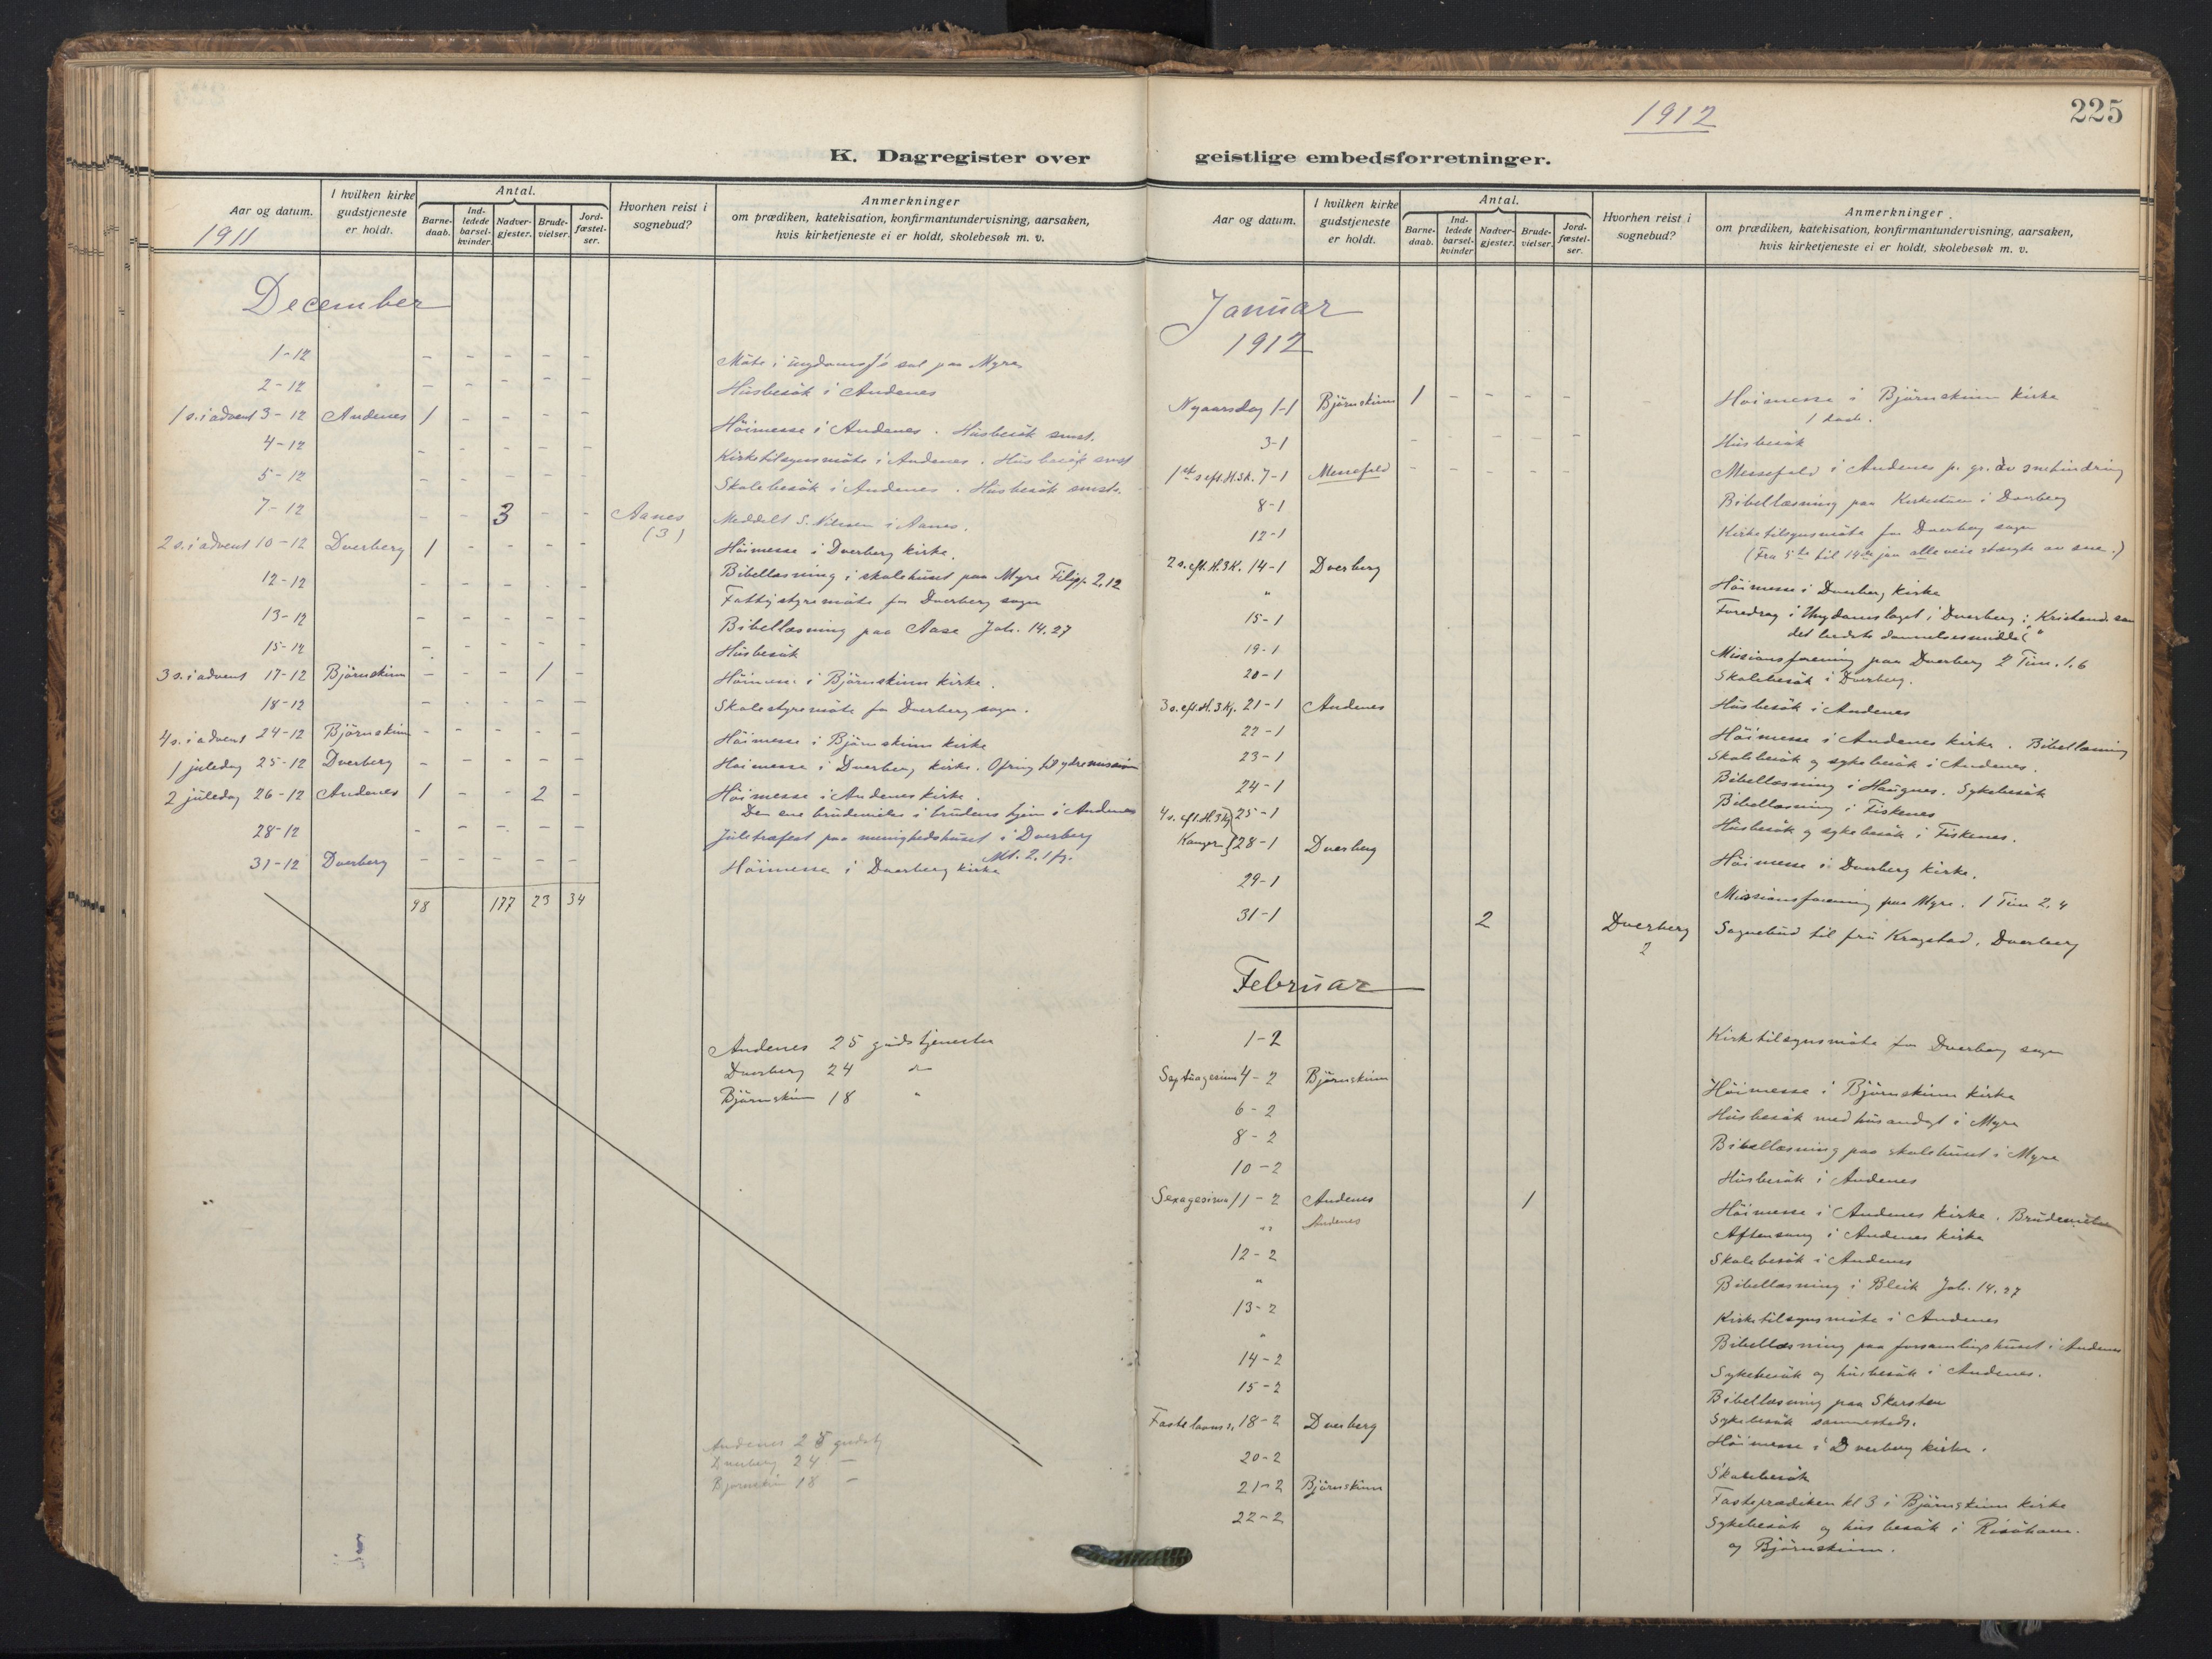 K. Dagregister over
Aar og datum.
1911
I hvilken kirke gudstjeneste er holdt.
Antal.
Barne-daab.
Ind-ledede barsel-kvinder.
Nadver-gjester.
Brude-vielser.
Jord-fæstel-ser.
Hvorhen reist i sognebud?
Anmerkninger
om prædiken, katekisation, konfirmantundervisning, aarsaken,
hvis kirketjeneste ei er holdt, skolebesøk m. v.
December
1-12 – – – – – Möte i ungdomsf's sal paa Myre
2-12 – – – – – Husbesök i Andenes
1 s. i advent 3-12 Andenes 1 – – – – Höimesse i Andenes. Husbesök smst.
4-12 – – – – – Kirketilsynsmöte i Andenes. Husbesök smst
5-12 – – – – – Skolebesök i Andenes. Husbesök smsts.
7-12 – – 3 – – Aanes (3) Meddelt S. Nilssen i Aanes.
2 s. i advent 10-12 Dverberg 1 – – – – Höimesse i Dverberg kirke.
12-12 – – – – – Bibellæsning i skolehuset paa Myre Filipp. 2,12
Fattigstyremöte for Dverberg sogn
13-12 – – – – – Bibellæsning paa Aase Joh. 14.27
15-12 – – – – – Husbesök
3 s. i advent 17-12 Björnskinn – – – 1 – Höimesse i Björnskinn kirke.
18-12 – – – – – Skolestyremöte for Dverberg sogn.
4 s. i advent 24-12 Björnskinn – – – – – Höimesse i Björnskinn kirke
1 juledag 25-12 Dverberg – – – – – Höimesse i Dverberg kirke. Ofring til ydremission
2 juledag 26-12 Andenes 1 – – 2 – Höimesse i Andenes kirke.
Den ene brudevielse i brudens hjem i Andenes
28-12 – – – – – Juletræfest paa menighedshuset i Dverberg
31-12 Dverberg – – – – – Höimesse i Dverberg kirke Mt. 2,1 fg.
98 177 23 34
Andenes 25 gudstjenester
Dverberg 24 "
Björnskinn 18 "
Andenes 25 gudstj
Dverberg 24 –
Bjørnskin 18 –
1912
225
geistlige embedsforretninger.
Aar og datum.
I hvilken kirke gudstjeneste er holdt.
Antal.
Barne-daab.
Ind-ledede barsel-kvinder
Nadver-gjester.
Brude-vielser.
Jord-fæstel-ser.
Hvorhen reist i sognebud?
Anmerkninger.
om prædiken, katekisation, konfirmantundervisning, aarsaken,
hvis kirketjeneste ei er holdt, skolebesøk m. v.
Januar
1912
Nyaarsdag 1-1 Björnskinn 1 – – – – Höimesse i Björnskinn kirke
1 daab.
3-1 – – – – – Husbesök
1ste s. eft. H.3k. 7-1 Messefald – – – – – Messefald i Andenes p. gr. av snehindring
8-1 Bibellæsning paa Kirkestuen i Dverberg
12-1 Kirketilsynsmöte for Dverberg sogn
(Fra 5te til 14de jan alle veie stængte av sne.)
2 s. eft. H.3K. 14-1 Dverberg Höimesse i Dverberg kirke
" Foredrag i Ungdomslaget i Dverberg: Kristend. som
det bedste dannelsesmiddel"
15-1 Missionsforening paa Dverberg 2 Tim. 1.6
19-1 Skolebesök i Dverberg.
20-1 Husbesök i Andenes
3 s. eft. H.3kg. 21-1 Andenes Höimesse i Andenes kirke. Bibellæsning
22-1 Skolebesök og sykebesök i Andenes.
23-1 Bibellæsning i Haugnes. Sykebesök
24-1 Bibellæsning i Fiskenes
25-1 Husbesök og sykebesök i Fiskenes.
4 s. eft. H.3kg 28-1 Dverberg Höimesse i Dverberg kirke.
29-1 Missionsforening paa Myre. 1 Tim 2,4
31-1 2 Dverberg 2 Sognebud til fru Kragstad, Dverberg
Februar
1-2 Kirketilsynsmöte for Dverberg sogn
Septuagesima 4-2 Björnskinn Höimesse i Björnskinn kirke
6-2 Husbesök med husandagt i Myre
8-2 Bibellæsning paa skolehuset i Myre
10-2 Husbesök i Andenes
Sexagesima 11-2 Andenes 1 Höimesse i Andenes kirke. Brudevielse
" Andenes Aftensang i Andenes kirke
12-2 Skolebesök i Andenes
" Bibellæsning i Bleik Joh. 14.27
13-2 Kirketilsynsmöte i Andenes
" Bibellæsning paa forsamlingshuset i Andenes
14-2 Sykebesök og husbesök i Andenes.
15-2 Bibellæsning paa Skarsten
Sykebesök sammesteds.
Fastelavns s. 18-2 Dverberg Höimesse i Dverberg kirke.
20-2 Skolebesök
21-2 Björnskinn Fasteprædiken kl 3 i Björnskinn kirke
22-2 Sykebesök og husbesök i Risöhavn.
og Björnskinn.